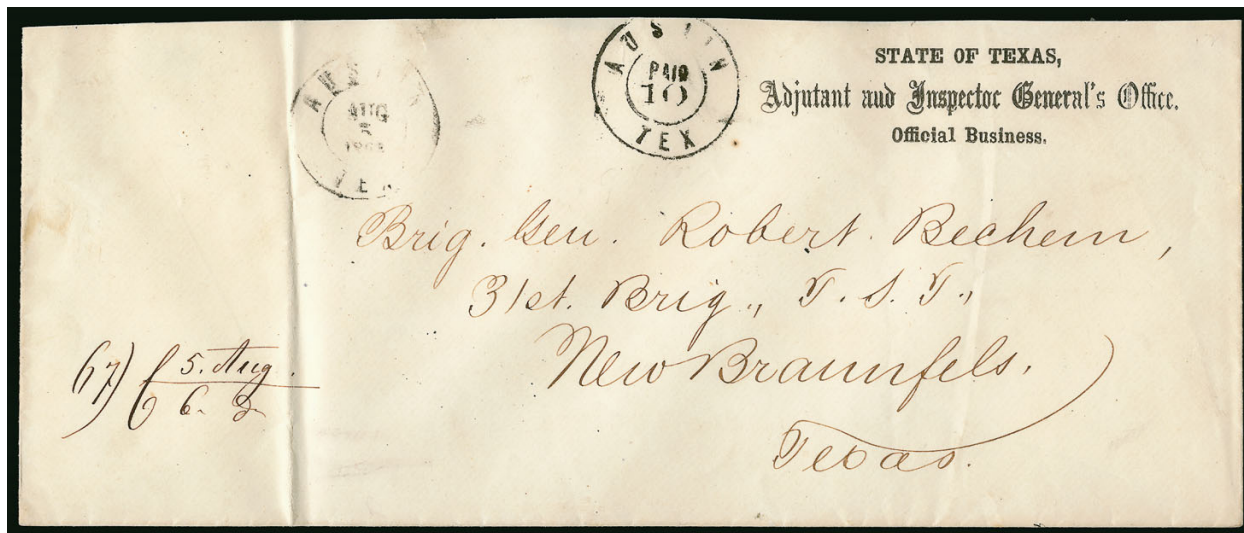 AUSTIN
PAID
10
TEX
STATE OF TEXAS,
Adjutant and Inspector General's Office.
Official Business.
AUG
5
TEX
Brig. Gen. Robert. Bechem,
31st. Brig., T. S. T.,
New Braunfels.
Texas.
67) 5. Aug.
6.